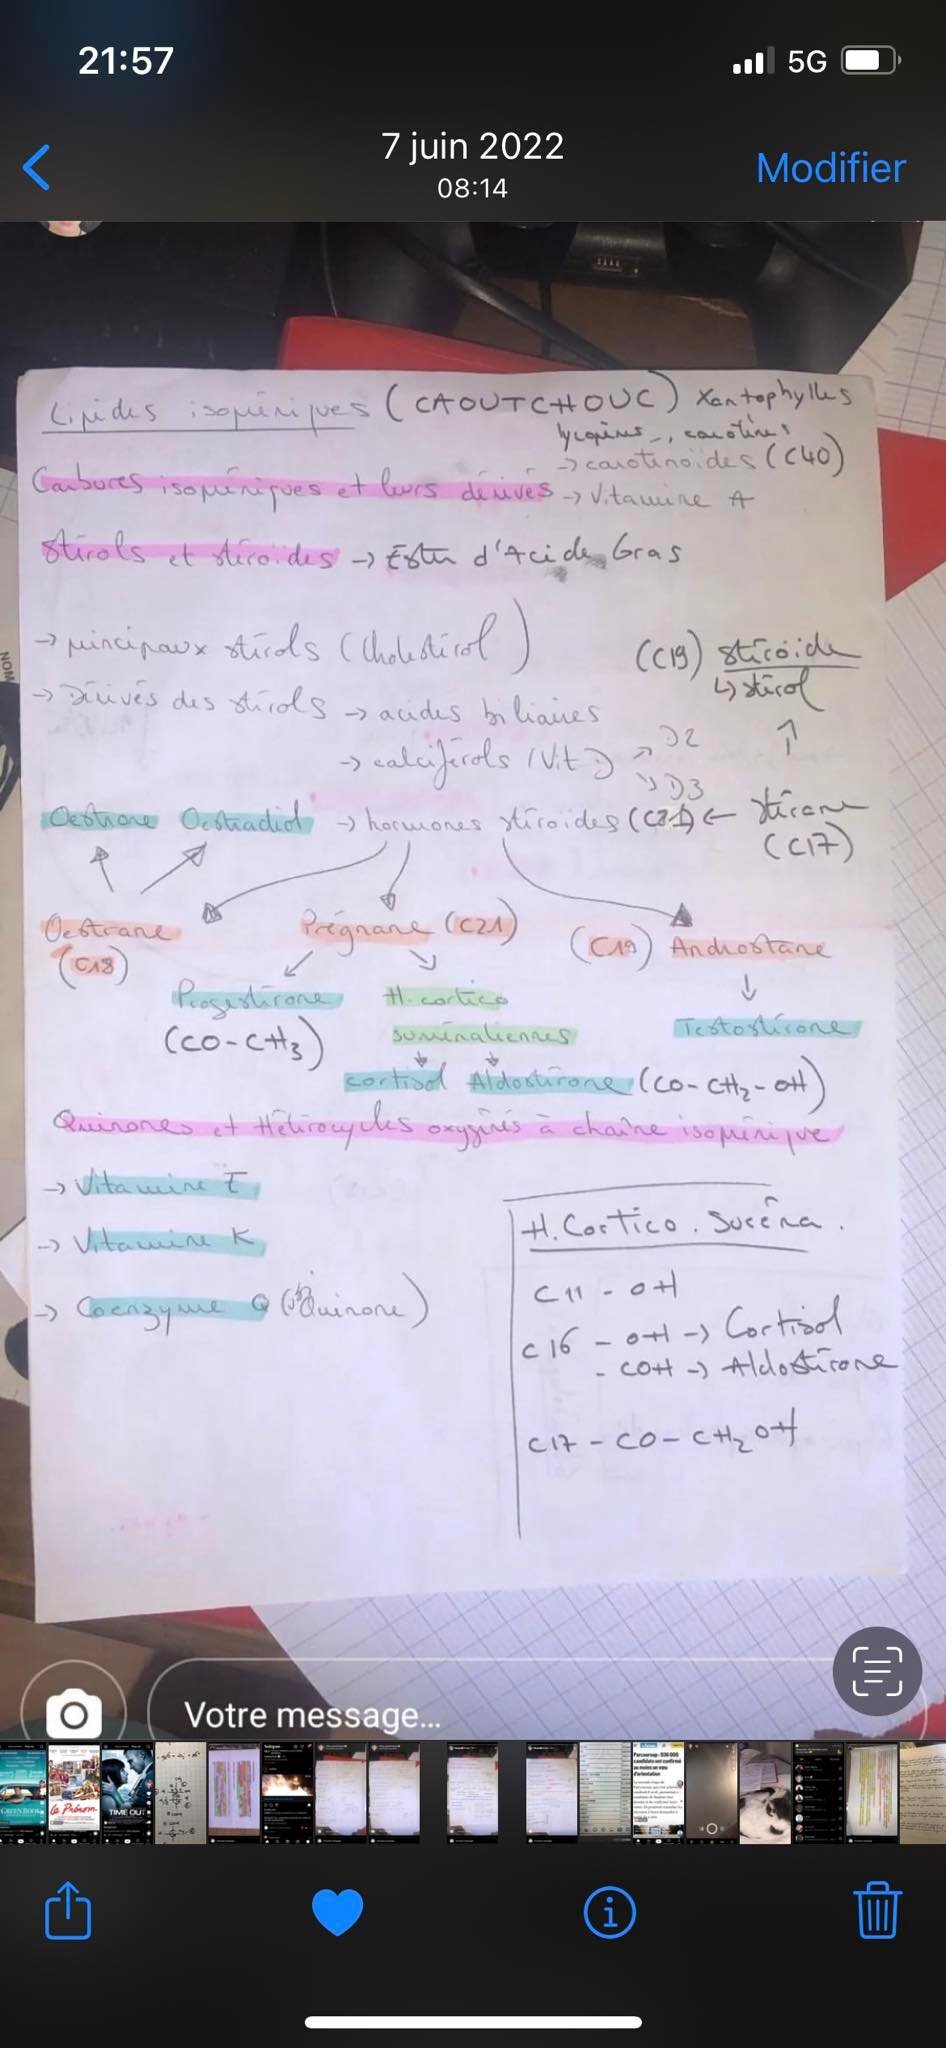 21:57
5G
7 juin 2022
08:14
Modifier
Lipides isopréniques (CAOUTCHOUC) Xantophylles
lycopènes, carotènes
→ carotenoïdes (C40)
Carbures isopréniques et leurs dérivés → Vitamine A
Stérols et stéroïdes → Ester d'Acide Gras
→ principaux stérols (Cholestérol)
(C19) stéroïde
↳ stérol
→ Dérivés des stérols → acides biliaires
→ calciférols (Vit D) → D2
→ D3
Oestrone Oestradiol → hormones stéroïdes (C21) ← Stérane
(C17)
Oestrane
(C18)
Prégnane (C21)
(C19) Androstane
Progestérone
(CO-CH3)
H. cortico
surrénaliennes
Testostérone
cortisol Aldostérone (CO-CH2-OH)
Quinones et Hétérocycles oxygénés à chaîne isoprénique
→ Vitamine E
→ Vitamine K
→ Coenzyme Q (Quinone)
H. Cortico. Surréna.
C11 - OH
C16 - OH → Cortisol
- COH → Aldostérone
C17 - CO - CH2OH
Votre message...
GREEN BOOK
Le Prénom
TIME OUT
Parcoursup : 936 000
candidats ont confirmé
au moins un vœu
d'orientation